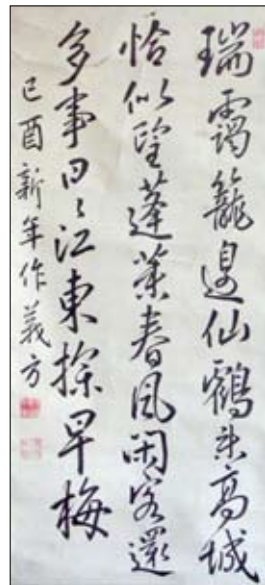 瑞靄籠邊仙鶴来高城
恰似望蓬莱春風閑客還
多事日々江東探早梅
己酉新年作義方